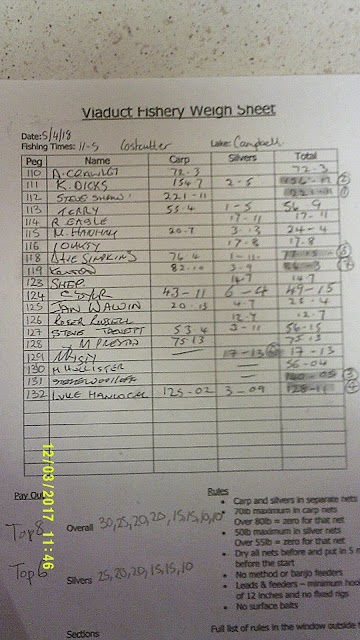 Viaduct Fishery Weigh Sheet
Date: 5/4/18
Fishing Times: 11-5 Costcutter Lake: Campbell
Peg Name Carp Silvers Total
110 72.3 72.3
111 K. DICKS 154.7 2-5 2
112 STEVE SHAW 221-11 221-11 1
113 TERRY 55.4 1-5 56.9
114 R EAGLE 17-11 17-11
115 M. 20.7 3-13 24-4
116 17.8 17.8
118 76.4 1-11 5
119 82.10 3-9 7
123 SHEP 14.7 14.7
124 43-11 6-4 49-15
125 IAN 20.13 4.7 25.4
126 ROGER RUSSELL 12.7 12.7
127 STEVE 53.4 3-11 56.15
128 M PRESTON 75.13 75.13
129 — 17-13 17-13
130 — 56-04
131 — 3
132 LUKE 125-02 3-09 128-11 4
12/03/2017 11:46
Pay Out
Top 8 Overall 30,25,20,20,15,15,10,10
Top 6 Silvers 25,20,20,15,15,10
Sections
Rules
• Carp and silvers in separate nets
• 70lb maximum in carp nets
Over 80lb = zero for that net
• 50lb maximum in silver nets
Over 55lb = zero for that net
• Dry all nets before and put in 5 m
before the start
• No method or banjo feeders
• Leads & feeders – minimum hoo
of 12 inches and no fixed rigs
• No surface baits
Full list of rules in the window outside